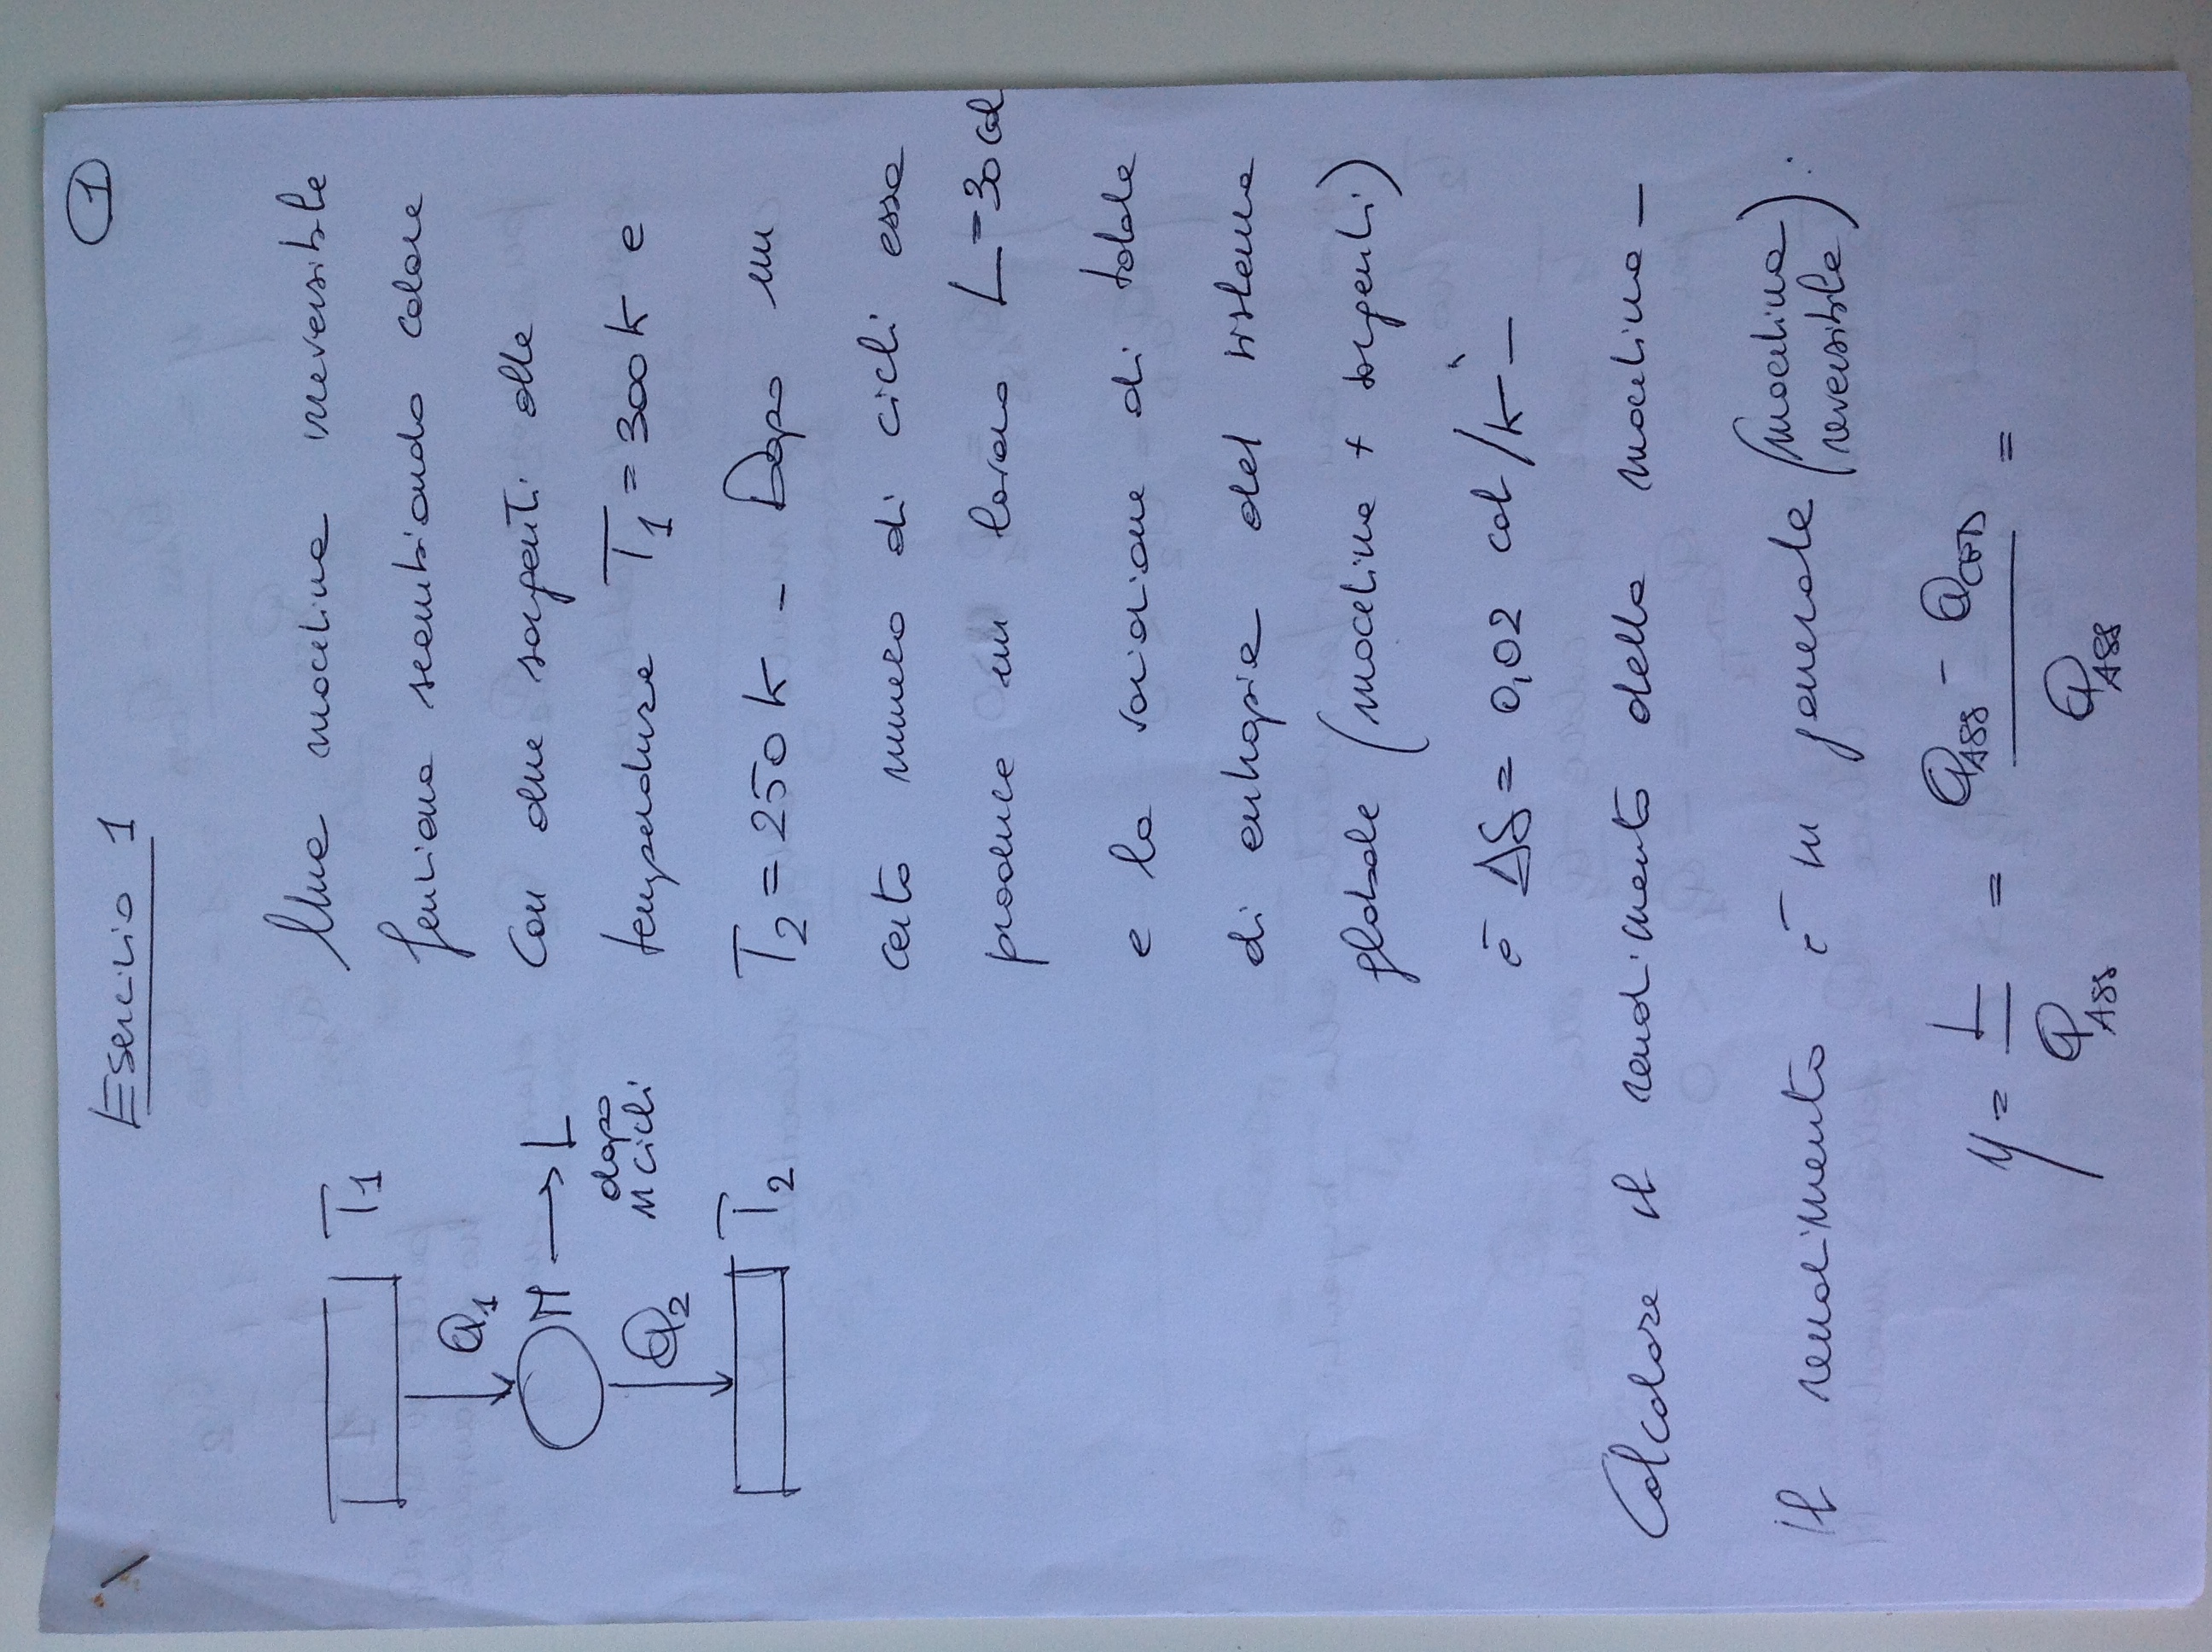 1
Esercizio 1
T1
Q1
M → L
dopo
n cicli
Q2
T2
Una macchina irreversibile
funziona scambiando calore
con due sorgenti alle
temperature T1 = 300 K e
T2 = 250 K - Dopo un
certo numero di cicli essa
produce un lavoro L = 30 cal
e la variazione di totale
di entropia del sistema
globale (macchina + sorgenti)
è ΔS = 0,02 cal/K -
Calcolare il rendimento della macchina -
Il rendimento è in generale (macchina reversibile):
η = L / QASS = (QASS - QCED) / QASS =